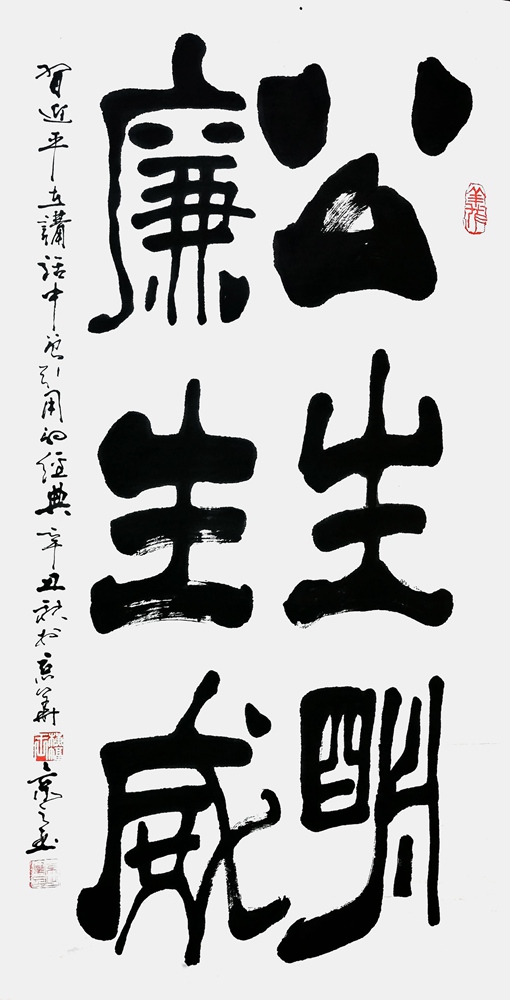 公生明
廉生威
習近平在講話中所引用的經典辛丑秋於京華